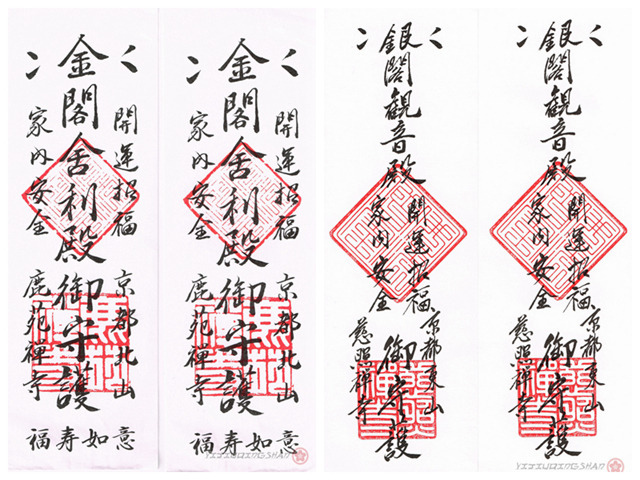 開運招福
京都北山
金閣舎利殿御守護
家内安全
鹿苑禅寺
福寿如意
開運招福
京都北山
金閣舎利殿御守護
家内安全
鹿苑禅寺
福寿如意
YIJIUQINGSHAN
開運招福
京都東山
銀閣観音殿御守護
家内安全
慈照禅寺
開運招福
京都東山
銀閣観音殿御守護
家内安全
慈照禅寺
YIJIUQINGSHAN